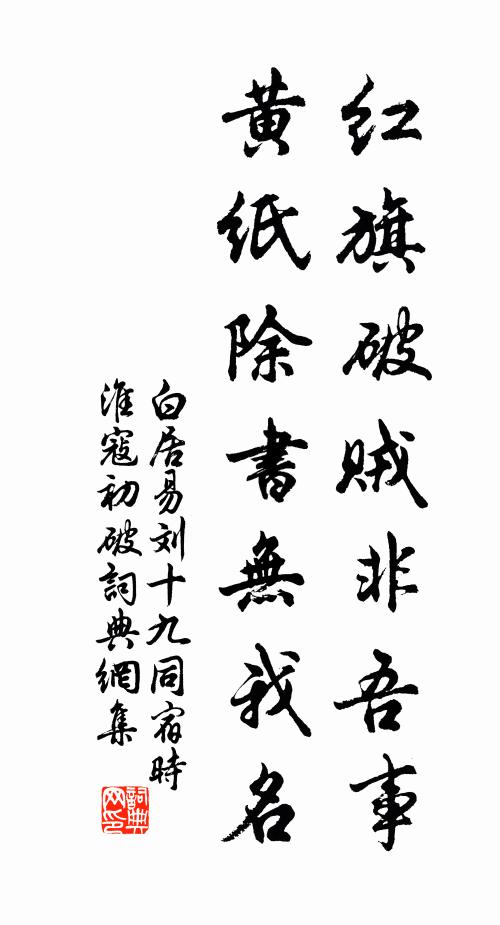 红旗破贼非吾事
黄纸除書無我名
白居易刘十九同宿時
淮寇初破詞典網集
詞典
网印